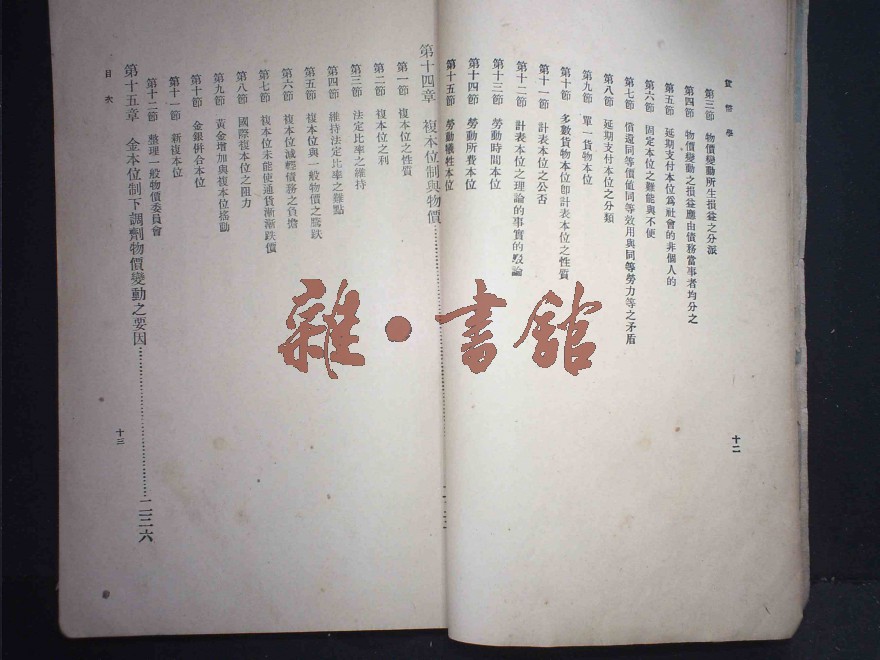 貨幣學
第三節 物價變動所生損益之分派
第四節 物價變動之損益應由債務當事者均分之
第五節 延期支付本位爲社會的非個人的
第六節 固定本位之難能與不便
第七節 償還同等價値同等效用與同等勞力等之矛盾
第八節 延期支付本位之分類
第九節 單一貨物本位
第十節 多數貨物本位卽計表本位之性質
第十一節 計表本位之公否
第十二節 計表本位之理論的事實的駁論
第十三節 勞動時間本位
第十四節 勞動所費本位
第十五節 勞動犧牲本位
十二
第十四章 複本位制與物價
第一節 複本位之性質
第二節 複本位之利
第三節 法定比率之維持
第四節 維持法定比率之難點
第五節 複本位與一般物價之騰跌
第六節 複本位減輕債務之負擔
第七節 複本位未能使通貨漸漸跌價
第八節 國際複本位之阻力
第九節 黃金增加與複本位搖動
第十節 金銀倂合本位
第十一節 新複本位
第十二節 整理一般物價委員會
第十五章 金本位制下調劑物價變動之要因……二三六
目次
十三
雜·書舘